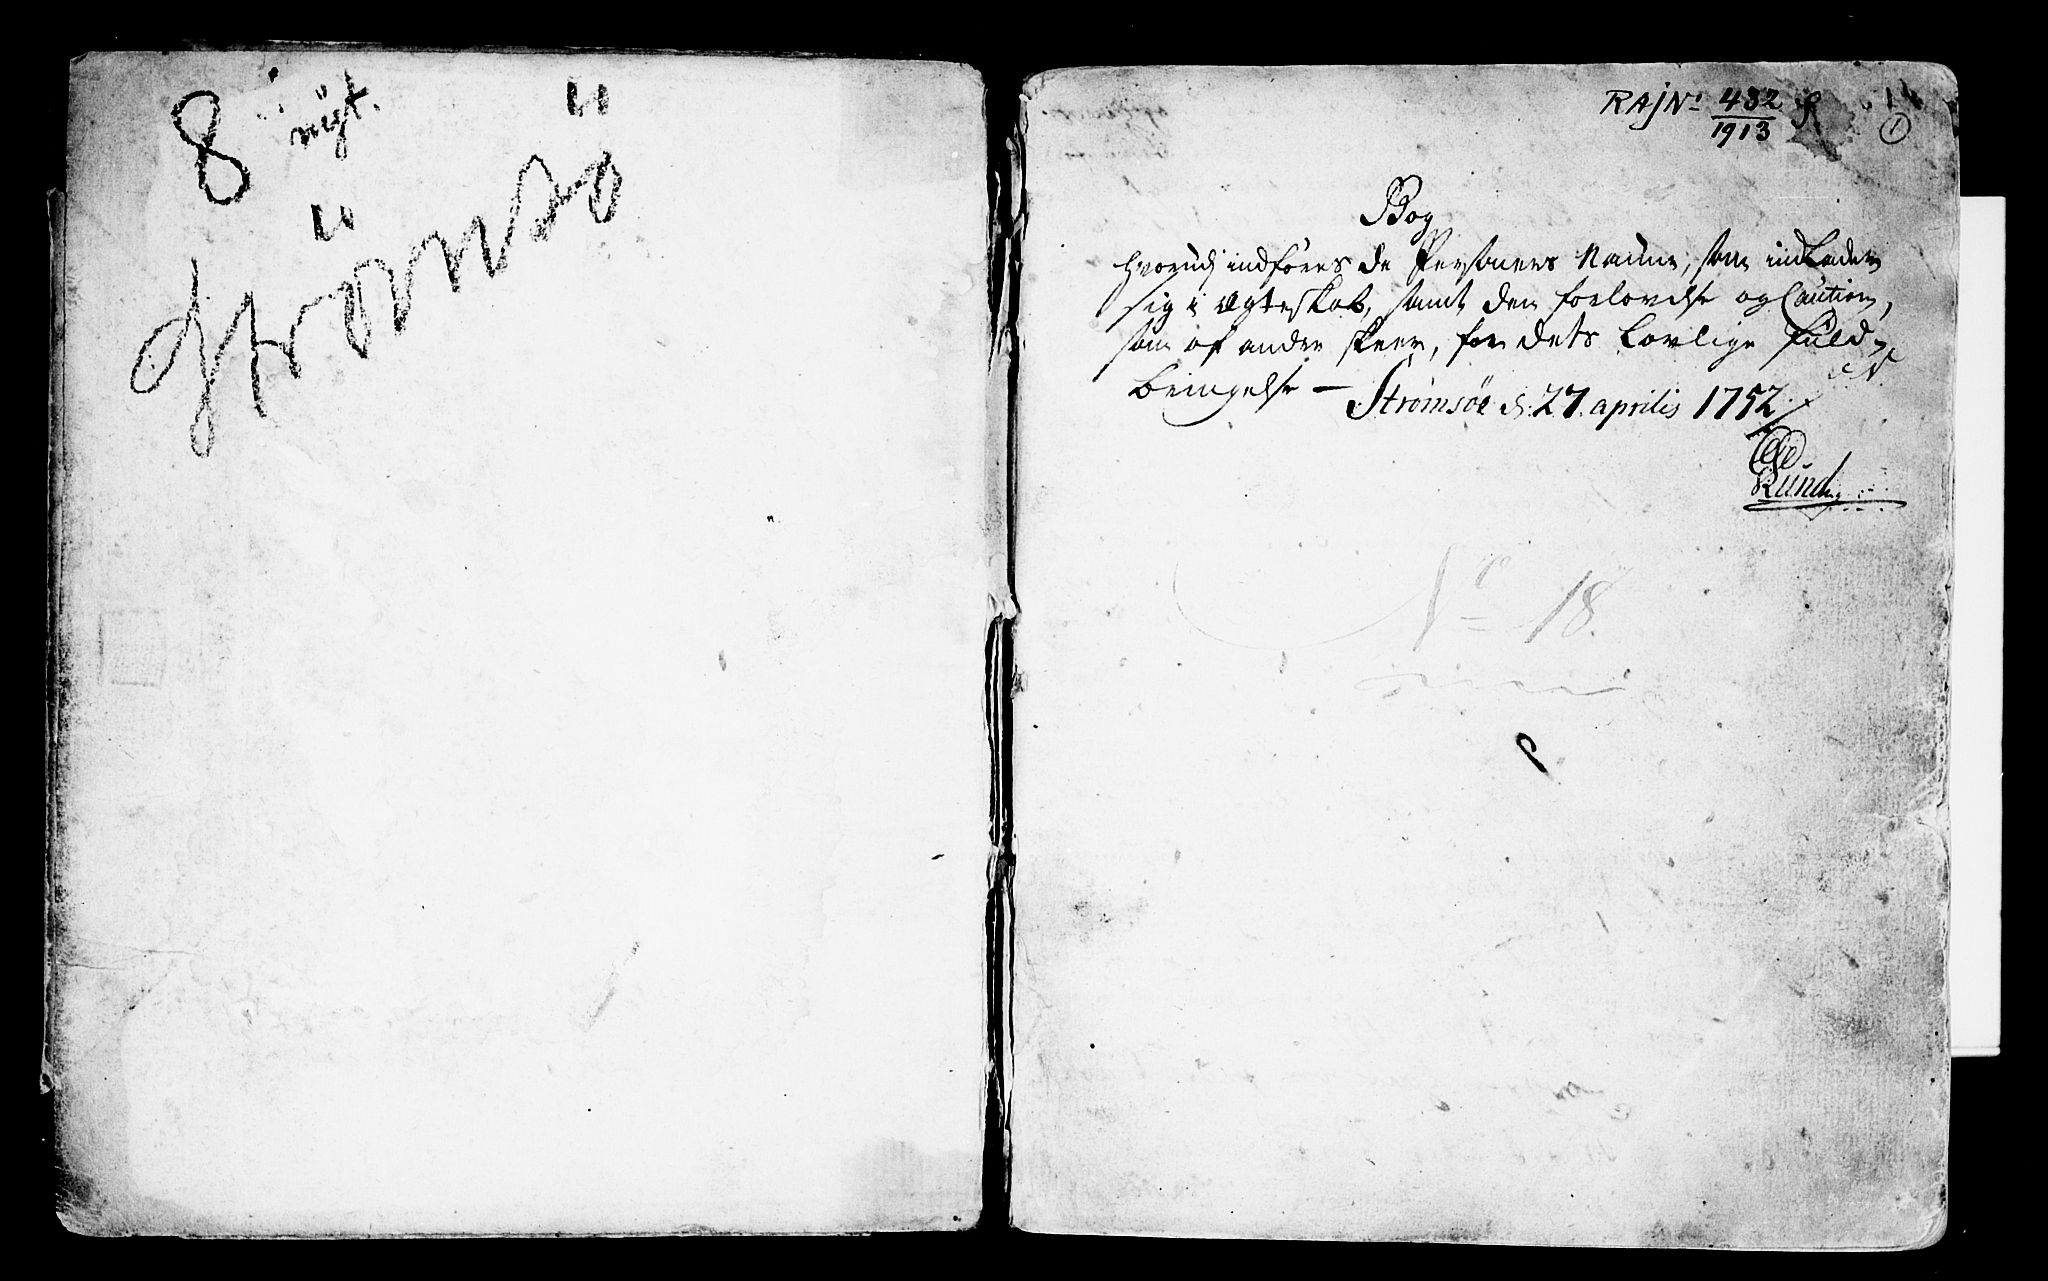 8 nÿt.
Strømsö
RAJNº 432/1913
1
Bog
hvorudj indføres de Persohners Naune, som indlader
sig i Ægteskab, samt den forlovelse og Caution,
som af andre skeer, for dets lovlige fuld-
bringelse — Strømsöe d. 27. aprilis 1752
Rund
Nº 18.